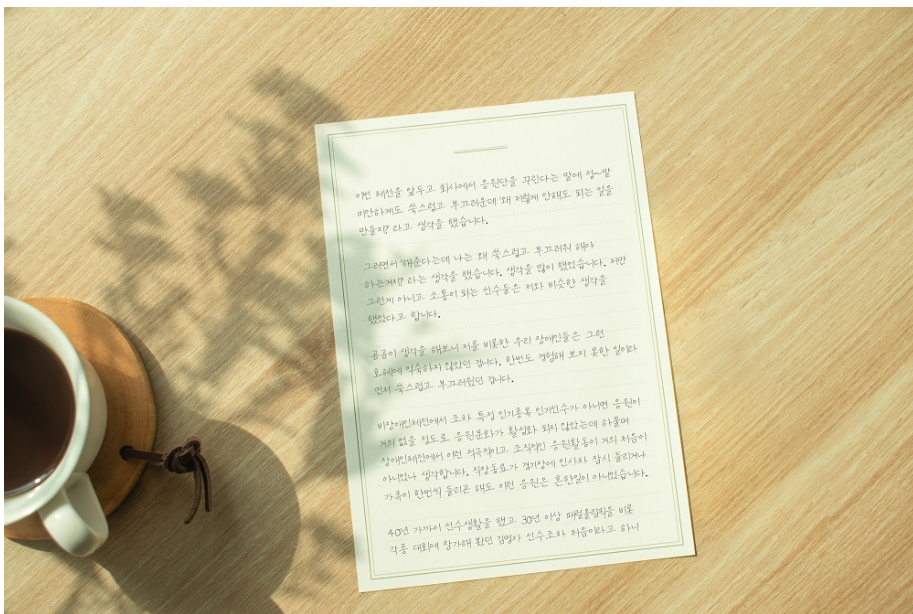 이번 체전을 앞두고 회사에서 응원단을 꾸린다는 말에 정~말
미안하게도 쑥스럽고 부끄러운데 '왜 저렇게 안해도 되는 일을
만들지?' 라고 생각을 했습니다.
그러면서 '해준다는데 나는 왜 쑥스럽고 부끄러워 해야
하는거지?' 라는 생각을 했습니다. 생각을 많이 했었습니다. 저만
그런게 아니고 소통이 되는 선수들은 저와 비슷한 생각을
했었다고 합니다.
곰곰이 생각을 해보니 저를 비롯한 우리 장애인들은 그런
호혜에 익숙하지 않았던 겁니다. 한번도 경험해 보지 못한 일이라
먼저 쑥스럽고 부끄러웠던 겁니다.
비장애인체전에서 조차 특정 인기종목 인기선수가 아니면 응원이
거의 없을 정도로 응원문화가 활성화 되지 않았는데 하물며
장애인체전에서 이런 적극적이고 조직적인 응원활동이 거의 처음이
아니었나 생각합니다. 직장동료가 경기장에 인사차 잠시 들리거나
가족이 한번씩 들리곤 해도 이런 응원은 흔한일이 아니었습니다.
40년 가까이 선수생활을 했고 30년 이상 패럴림픽을 비롯
각종 대회에 참가해 봤던 김영자 선수조차 처음이라고 하니